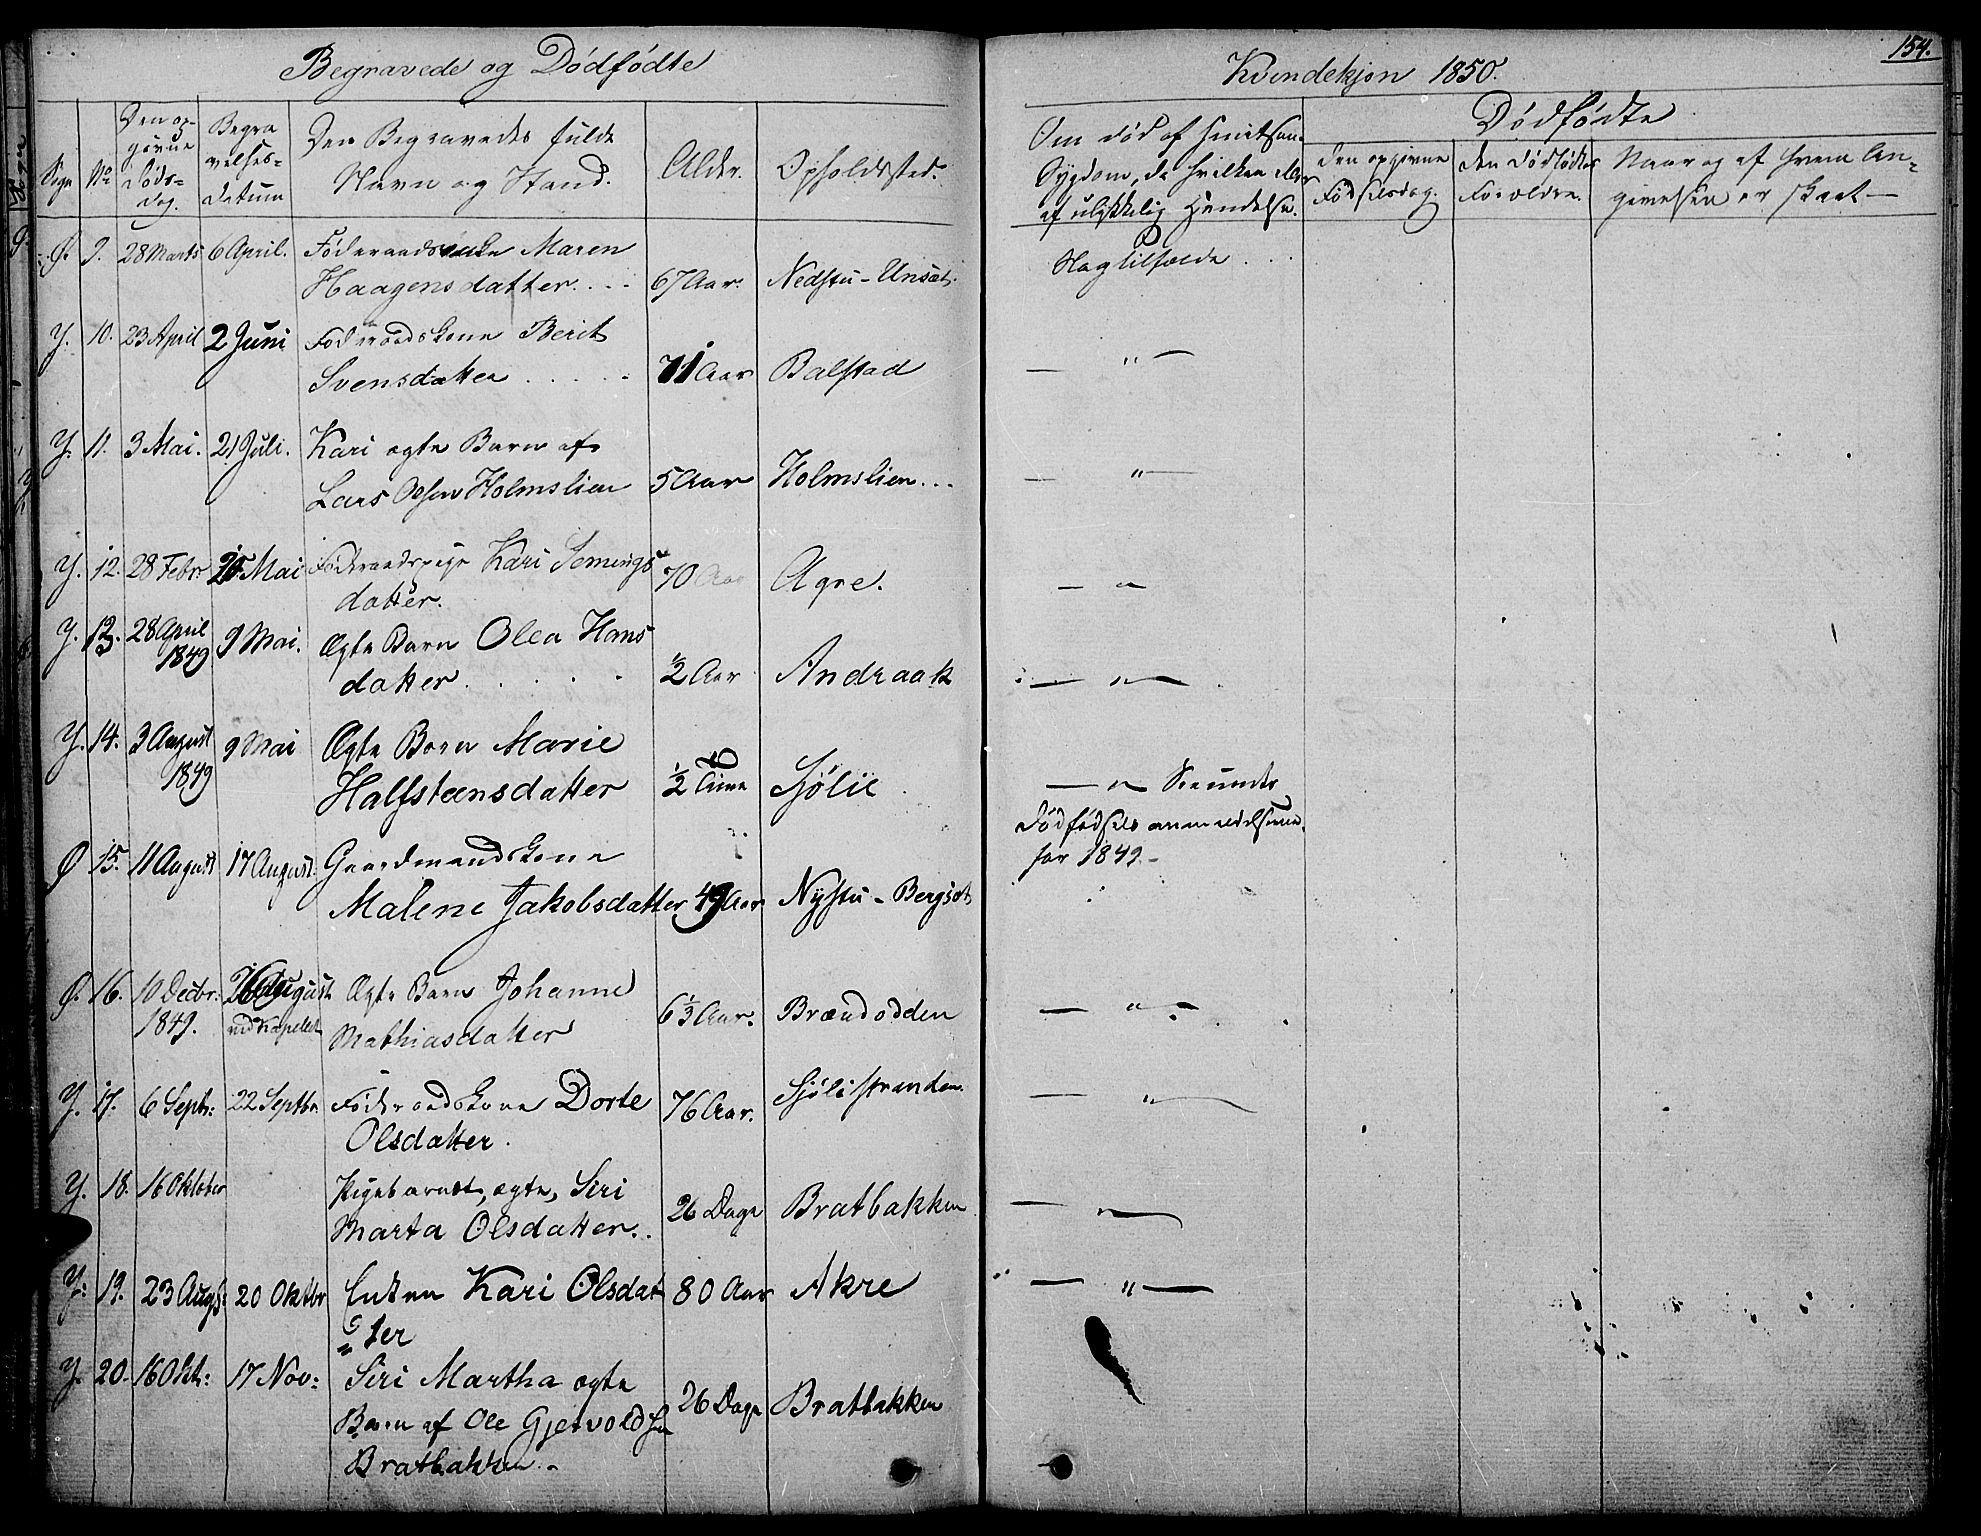 Begravede og Dødfødte
Kvindekjøn 1850.
154.
Sogn
No
Den opgivne Døds-dag.
Begravelses-datum
Den Begravedes fulde Navn og Stand.
Alder.
Opholdssted.
Om død af smitsom Sygdom, da hvilken eller af ulykkelig Hændelse.
Dødfødte
Den opgivne Fødselsdag.
Den Dødfødtes Forældre.
Naar og af hvem An-
givelsen er skeet —
Ø. 9. 28 Marts 6 April. Føderaadsenke Maren
Haagensdatter. 67 Aar. Nedstu-Unsæt.
Slagtilfælde
Y. 10. 23 April 2 Juni Føderaadskone Berit
Svensdatter 71 Aar Balstad
— " —
Y. 11. 3 Mai. 21 Juli. Kari ægte Barn af
Lars Olsen Holmslien 5 Aar Holmslien
— " —
Y. 12. 28 Febr. Mai Føderaadspige Kari Semings
datter. 70 Aar Agre.
— " —
Y. 13. 28 April 9 Mai. Ægte Barn Olea Hans
1849
datter ½ Aar Andraak
— " —
Y. 14. 3 August 9 Mai Ægte Barn Marie
1849
Halfsteensdatter ½ Time Sjølie
— " —
Dødfødsels anmeldelserne
for 1849.
Ø 15. 11 August 17 August. Gaardmandskone
Malene Jakobsdatter 49 Aar Nystu-Bergsæt
Ø. 16. 10 Decbr. August Ægte Barn Johanne
1849. ved Kapellet
Mathiasdatter 6½ Aar. Brændodden
— " —
Y. 17. 6 Septr: 22 Septbr Føderaadskone Dorte
Olsdatter. 76 Aar. Sjølistranden.
— " —
Y. 18. 16 Oktober Pigebarnet, ægte, Siri
Marta Olsdatter. 26 Dage Bratbakken
— " —
Y. 19. 23 Augs: 20 Oktbr Enken Kari Olsdat
ter 80 Aar Akre
— " —
Y. 20. 16 Okt: 17 Nov: Siri Martha ægte
Barn af Ole Gjervoldsen
Bratbakken 26 Dage Bratbakken